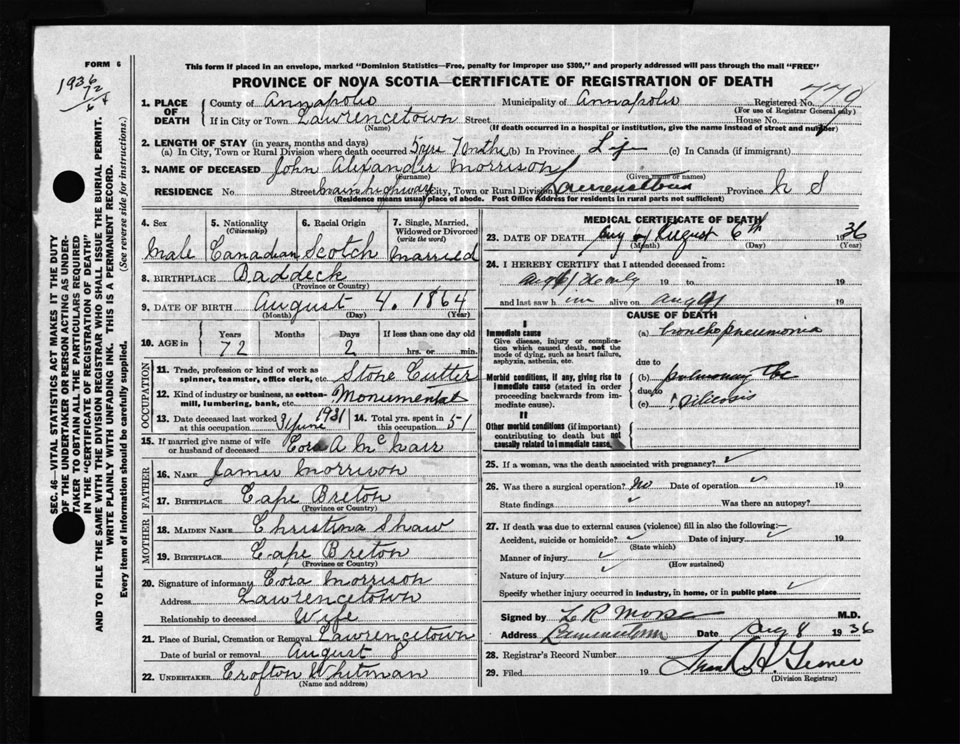 FORM 6
This form if placed in an envelope, marked "Dominion Statistics—Free, penalty for improper use $300," and properly addressed will pass through the mail "FREE"
PROVINCE OF NOVA SCOTIA—CERTIFICATE OF REGISTRATION OF DEATH
1936
72
64
SEC. 46—VITAL STATISTICS ACT MAKES IT THE DUTY
OF THE UNDERTAKER OR PERSON ACTING AS UNDER-
TAKER TO OBTAIN ALL THE PARTICULARS REQUIRED
IN THE "CERTIFICATE OF REGISTRATION OF DEATH"
AND TO FILE THE SAME WITH THE DIVISION REGISTRAR WHO SHALL ISSUE THE BURIAL PERMIT.
WRITE PLAINLY WITH UNFADING INK. THIS IS A PERMANENT RECORD.
Every item of information should be carefully supplied. (See reverse side for instructions.)
1. PLACE OF DEATH
County of Annapolis Municipality of Annapolis Registered No. 770
(For use of Registrar General only)
If in City or Town Lawrencetown Street House No.
(Name) (If death occurred in a hospital or institution, give the name instead of street and number)
2. LENGTH OF STAY (in years, months and days)
(a) In City, Town or Rural Division where death occurred 5 yrs 7 mths (b) In Province Life (c) In Canada (if immigrant)
3. NAME OF DECEASED John Alexander Morrison
(Surname) (Given name or names)
RESIDENCE No Street Main highway City, Town or Rural Division Lawrencetown Province N S
(Residence means usual place of abode. Post Office Address for residents in rural parts not sufficient)
4. Sex 5. Nationality (Citizenship) 6. Racial Origin 7. Single, Married, Widowed or Divorced (write the word)
Male Canadian Scotch Married
8. BIRTHPLACE Baddeck
(Province or Country)
9. DATE OF BIRTH August 4. 1864
(Month) (Day) (Year)
10. AGE in Years Months Days If less than one day old
72 2 hrs. or min.
OCCUPATION
11. Trade, profession or kind of work as spinner, teamster, office clerk, etc. Stone Cutter
12. Kind of industry or business, as cotton-mill, lumbering, bank, etc. Monumental
13. Date deceased last worked at this occupation June 1931 14. Total yrs. spent in this occupation 51
15. If married give name of wife or husband of deceased Cora A McNair
FATHER
16. NAME James Morrison
17. BIRTHPLACE Cape Breton
(Province or Country)
MOTHER
18. MAIDEN NAME Christina Shaw
19. BIRTHPLACE Cape Breton
(Province or Country)
20. Signature of informant Cora Morrison
Address Lawrencetown
Relationship to deceased Wife
21. Place of Burial, Cremation or Removal Lawrencetown
Date of burial or removal August 8
22. UNDERTAKER Crofton Whitman
(Name and address)
MEDICAL CERTIFICATE OF DEATH
23. DATE OF DEATH August 6th 1936
(Month) (Day) (Year)
24. I HEREBY CERTIFY that I attended deceased from:
19 to 19
and last saw him alive on Aug 19
CAUSE OF DEATH
I
Immediate cause
Give disease, injury or complication which caused death, not the mode of dying, such as heart failure, asphyxia, asthenia, etc.
(a) bronchopneumonia
due to
Morbid conditions, if any, giving rise to immediate cause (stated in order proceeding backwards from immediate cause).
(b) pulmonary tbc
due to
(c) silicosis
II
Other morbid conditions (if important) contributing to death but not causally related to immediate cause.
25. If a woman, was the death associated with pregnancy?
26. Was there a surgical operation? No Date of operation 19
State findings Was there an autopsy?
27. If death was due to external causes (violence) fill in also the following:—
Accident, suicide or homicide? Date of injury 19
(State which)
Manner of injury
(How sustained)
Nature of injury
Specify whether injury occurred in industry, in home, or in public place
Signed by L R Morse M.D.
Address Lawrencetown Date Aug 8 1936
28. Registrar's Record Number
29. Filed 19
(Division Registrar)